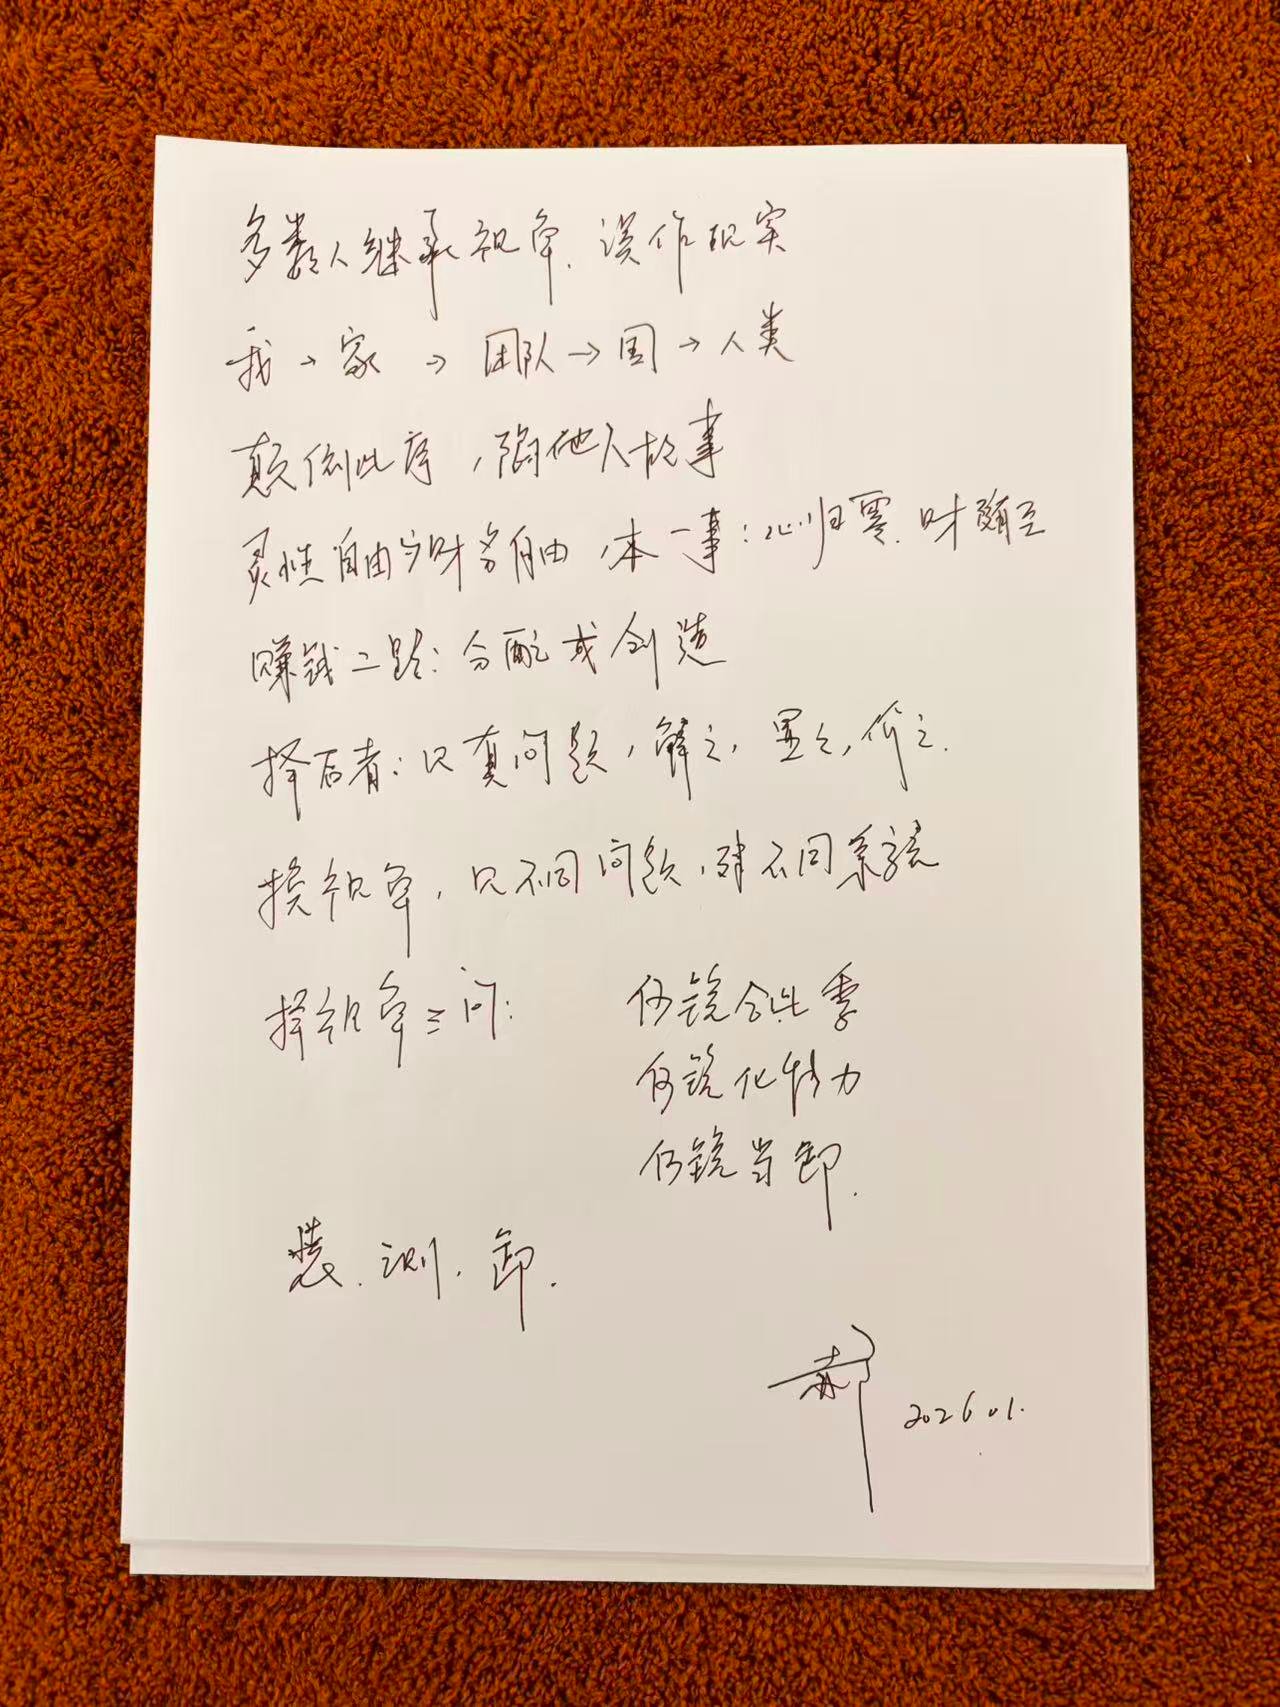 多数人继承视角，误作现实
我→家→团队→国→人类
颠倒此序，陷他人故事
灵性自由与财务自由，本一事：心归零，财随至
赚钱二路：分配或创造
择后者：见真问题，解之，置之，价之.
换视角，见不同问题，建不同系统
择视角三问：
何镜合此季
何镜化特力
何镜当卸.
装.测.卸.
郝 2026.01.